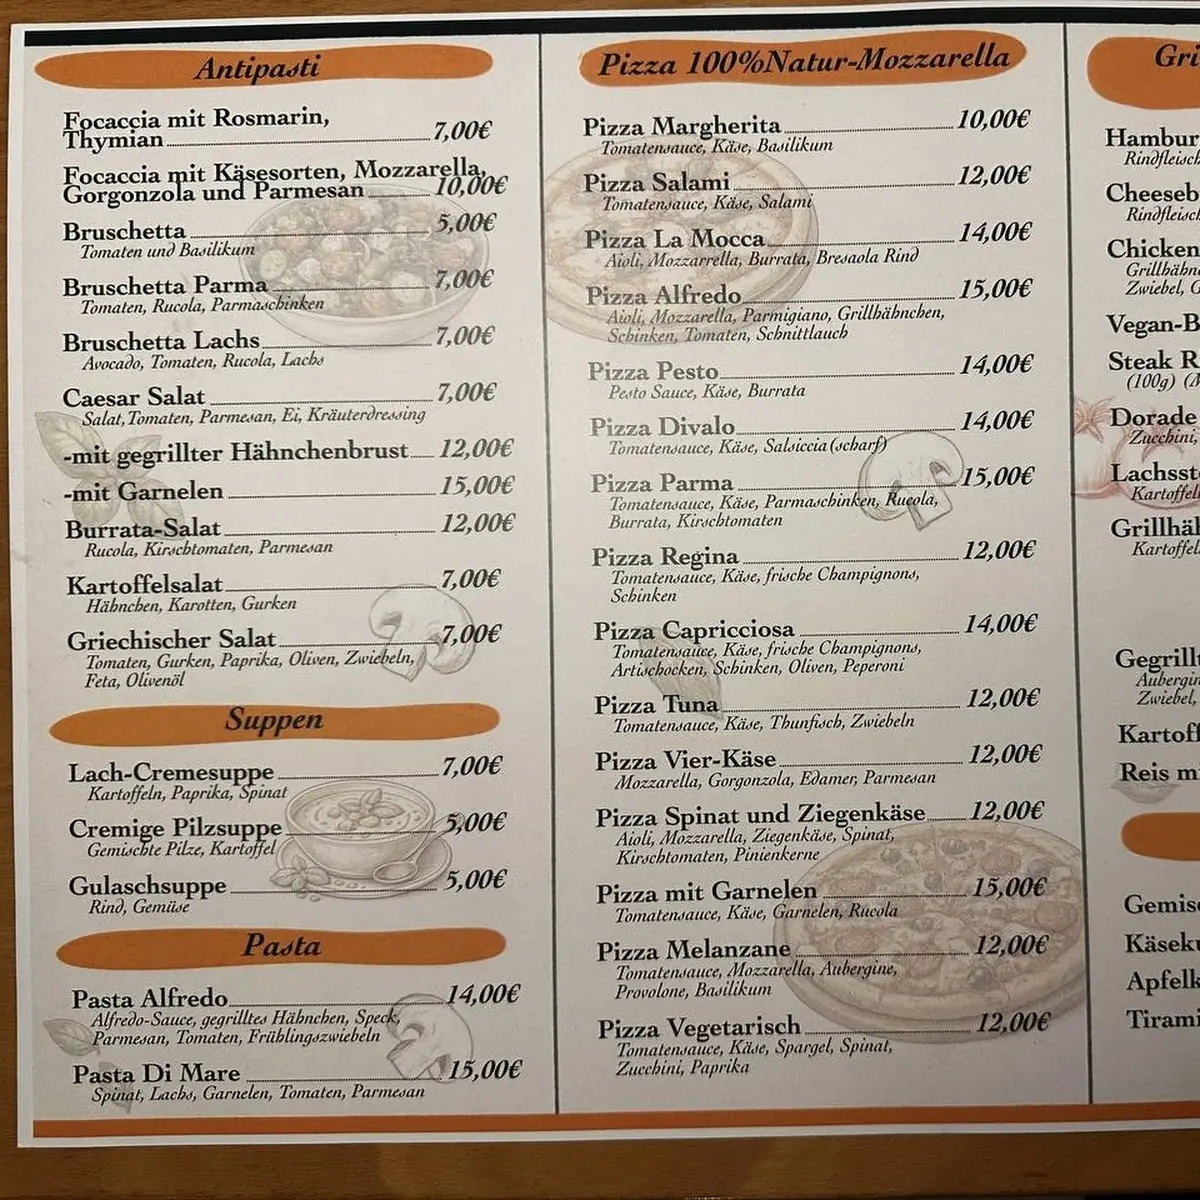 Antipasti
Focaccia mit Rosmarin,
Thymian 7,00€
Focaccia mit Käsesorten, Mozzarella,
Gorgonzola und Parmesan 10,00€
Bruschetta 5,00€
Tomaten und Basilikum
Bruschetta Parma 7,00€
Tomaten, Rucola, Parmaschinken
Bruschetta Lachs 7,00€
Avocado, Tomaten, Rucola, Lachs
Caesar Salat 7,00€
Salat, Tomaten, Parmesan, Ei, Kräuterdressing
-mit gegrillter Hähnchenbrust 12,00€
-mit Garnelen 15,00€
Burrata-Salat 12,00€
Rucola, Kirschtomaten, Parmesan
Kartoffelsalat 7,00€
Hähnchen, Karotten, Gurken
Griechischer Salat 7,00€
Tomaten, Gurken, Paprika, Oliven, Zwiebeln,
Feta, Olivenöl
Suppen
Lach-Cremesuppe 7,00€
Kartoffeln, Paprika, Spinat
Cremige Pilzsuppe 5,00€
Gemischte Pilze, Kartoffel
Gulaschsuppe 5,00€
Rind, Gemüse
Pasta
Pasta Alfredo 14,00€
Alfredo-Sauce, gegrilltes Hähnchen, Speck,
Parmesan, Tomaten, Frühlingszwiebeln
Pasta Di Mare 15,00€
Spinat, Lachs, Garnelen, Tomaten, Parmesan
Pizza 100%Natur-Mozzarella
Pizza Margherita 10,00€
Tomatensauce, Käse, Basilikum
Pizza Salami 12,00€
Tomatensauce, Käse, Salami
Pizza La Mocca 14,00€
Aioli, Mozzarrella, Burrata, Bresaola Rind
Pizza Alfredo 15,00€
Aioli, Mozzarella, Parmigiano, Grillhähnchen,
Schinken, Tomaten, Schnittlauch
Pizza Pesto 14,00€
Pesto Sauce, Käse, Burrata
Pizza Divalo 14,00€
Tomatensauce, Käse, Salsiccia(scharf)
Pizza Parma 15,00€
Tomatensauce, Käse, Parmaschinken, Rucola,
Burrata, Kirschtomaten
Pizza Regina 12,00€
Tomatensauce, Käse, frische Champignons,
Schinken
Pizza Capricciosa 14,00€
Tomatensauce, Käse, frische Champignons,
Artischocken, Schinken, Oliven, Peperoni
Pizza Tuna 12,00€
Tomatensauce, Käse, Thunfisch, Zwiebeln
Pizza Vier-Käse 12,00€
Mozzarella, Gorgonzola, Edamer, Parmesan
Pizza Spinat und Ziegenkäse 12,00€
Aioli, Mozzarella, Ziegenkäse, Spinat,
Kirschtomaten, Pinienkerne
Pizza mit Garnelen 15,00€
Tomatensauce, Käse, Garnelen, Rucola
Pizza Melanzane 12,00€
Tomatensauce, Mozzarella, Aubergine,
Provolone, Basilikum
Pizza Vegetarisch 12,00€
Tomatensauce, Käse, Spargel, Spinat,
Zucchini, Paprika
Gri
Hambur
Rindfleisch
Cheeseb
Rindfleisc
Chicken
Grillhähn
Zwiebel, G
Vegan-B
Steak R
(100g)
Dorade
Zucchini,
Lachsst
Kartoffel
Grillhäh
Kartoffel
Gegrill
Aubergin
Zwiebel,
Kartoff
Reis m
Gemis
Käseku
Apfelk
Tirami